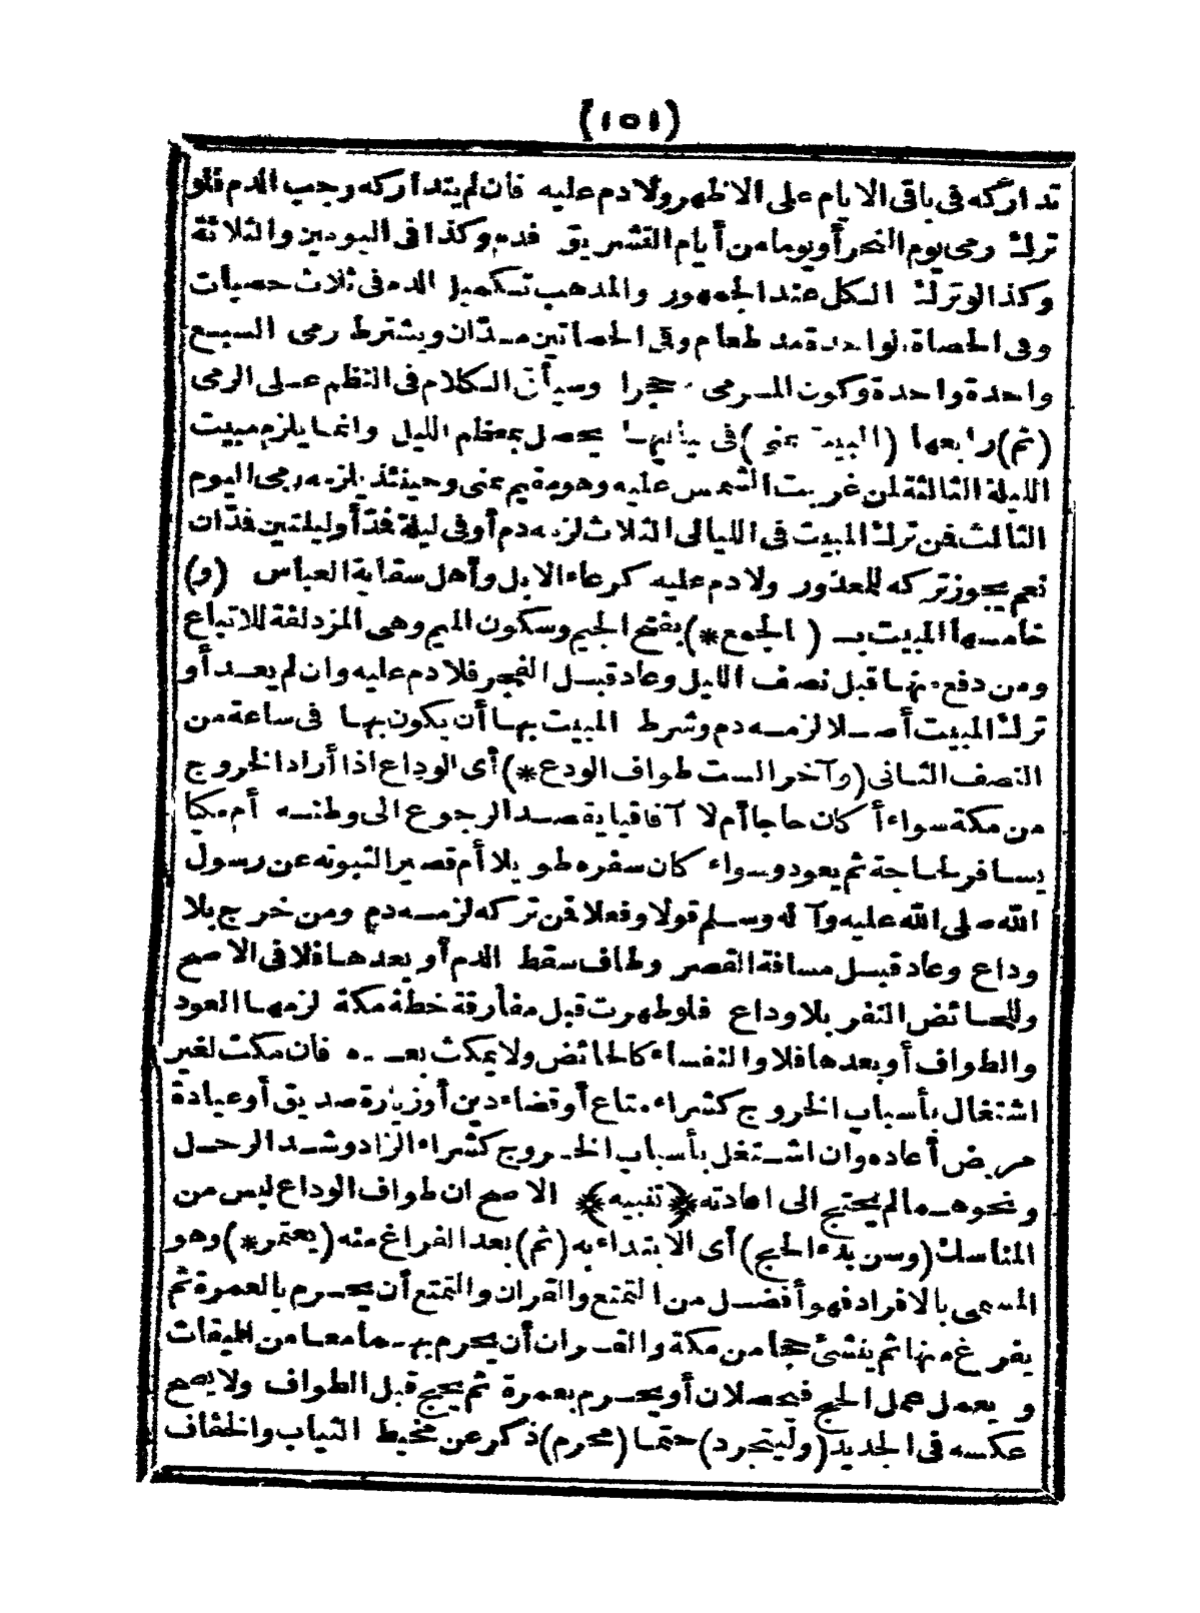 (١٥١)
تداركه فى باقى الايام على الاظهر ولا دم عليه فان لم يتداركه وجب الدم فلو
ترك رمى يوم النحر أو يوما من أيام التشريق فدم وكذا فى اليومين والثلاثة
وكذا لو ترك الكل عند الجمهور والمذهب تكميل الدم فى ثلاث حصيات
وفى الحصاة الواحدة مد طعام وفى الحصاتين مدّان ويشترط رمى السبع
واحدة واحدة وكون المرمى حجرا وسيأتى الكلام فى النظم على الرمى
(ثم) رابعها (المبيت بمنى) فى لياليها يحصل بمعظم الليل وانما يلزم مبيت
الليلة الثالثة لمن غربت الشمس عليه وهو مقيم بمنى وحينئذ يلزمه رمى اليوم
الثالث فمن ترك المبيت فى الليالى الثلاث لزمه دم أو فى ليلة فمدّ أو ليلتين فمدّان
نعم يجوز تركه للمعذور ولا دم عليه كرعاء الابل وأهل سقاية العباس (و)
خامسها المبيت بـ (الجمع*) بفتح الجيم وسكون الميم وهى المزدلفة للاتباع
ومن دفع منها قبل نصف الليل وعاد قبل الفجر فلا دم عليه وان لم يعد أو
ترك المبيت أصلا لزمه دم وشرط المبيت بها أن يكون بها فى ساعة من
النصف الثانى (وآخر الست طواف الودع*) أى الوداع اذا أراد الخروج
من مكة سواء أكان حاجا أم لا آفاقيا يقصد الرجوع الى وطنه أم مكيا
يسافر لحاجة ثم يعود وسواء كان سفره طويلا أم قصيرا لثبوته عن رسول
الله صلى الله عليه وآله وسلم قولا وفعلا فمن تركه لزمه دم ومن خرج بلا
وداع وعاد قبل مسافة القصر وطاف سقط الدم أو بعدها فلا فى الاصح
وللحائض النفر بلا وداع فلو طهرت قبل مفارقة خطة مكة لزمها العود
والطواف أو بعدها فلا والنفساء كالحائض ولا يمكث بعده فان مكث لغير
اشتغال بأسباب الخروج كشراء متاع أو قضاء دين أو زيارة صديق أو عيادة
مريض أعاده وان اشتغل بأسباب الخروج كشراء الزاد وشد الرحل
ونحوهما لم يحتج الى اعادته ﴿تنبيه﴾ الاصح ان طواف الوداع ليس من
المناسك (وسن بدء الحج) أى الابتداء به (ثم) بعد الفراغ منه (يعتمر*) وهو
المسمى بالافراد فهو أفضل من التمتع والقران والتمتع أن يحرم بالعمرة ثم
يفرغ منها ثم ينشئ حجا من مكة والقران أن يحرم بهما معا من الميقات
ويعمل عمل الحج فيحصلان أو يحرم بعمرة ثم يحج قبل الطواف ولا يصح
عكسه فى الجديد (وليتجرد) حتما (محرم) ذكر عن مخيط الثياب والخفاف